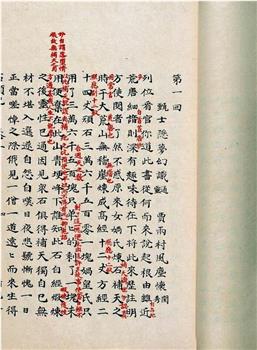 第一回
甄士隱夢幻識通　賈雨村風塵懷閨
列位看官你道此書從何而來說起根由雖近
荒唐細諳則深有趣味待在下將此來歷註明
方使閱者了然不惑原來女媧氏煉石補天之
時於大荒山無稽崖煉成高經十二丈方經二
十四丈頑石三萬六千五百零一塊媧皇氏只
用了三萬六千五百塊只單單的剩了一塊未
用便棄在此山青埂峰下誰知此石自經煅煉
之後靈性已通因見眾石俱得補天獨自己無
材不堪入選遂自怨自嘆日夜悲號慚愧一日
正當嗟悼之際俄見一僧一道遠遠而來生得
妙自謂落墮情
根故無補天之用
荒唐也
無稽也
總應十二釵
照應副十二釵
合周天之數